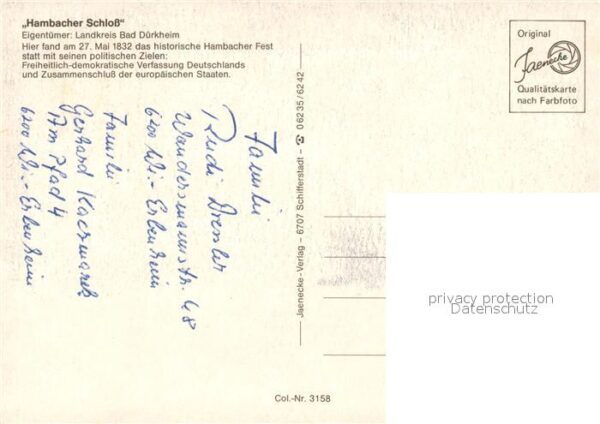 „Hambacher Schloß"
Eigentümer: Landkreis Bad Dürkheim
Hier fand am 27. Mai 1832 das historische Hambacher Fest
statt mit seinen politischen Zielen:
Freiheitlich-demokratische Verfassung Deutschlands
und Zusammenschluß der europäischen Staaten.
Original
Jaenecke
Qualitätskarte
nach Farbfoto
Familie
Rudi Drexler
Wandersmannstr. 68
6200 Wi.-Erbenheim
Familie
Gerhard Kaczmarek
Am Pfad 4
6200 Wi.-Erbenheim
Jaenecke-Verlag – 6707 Schifferstadt – ☎ 06235/6242
privacy protection
Datenschutz
Col.-Nr. 3158